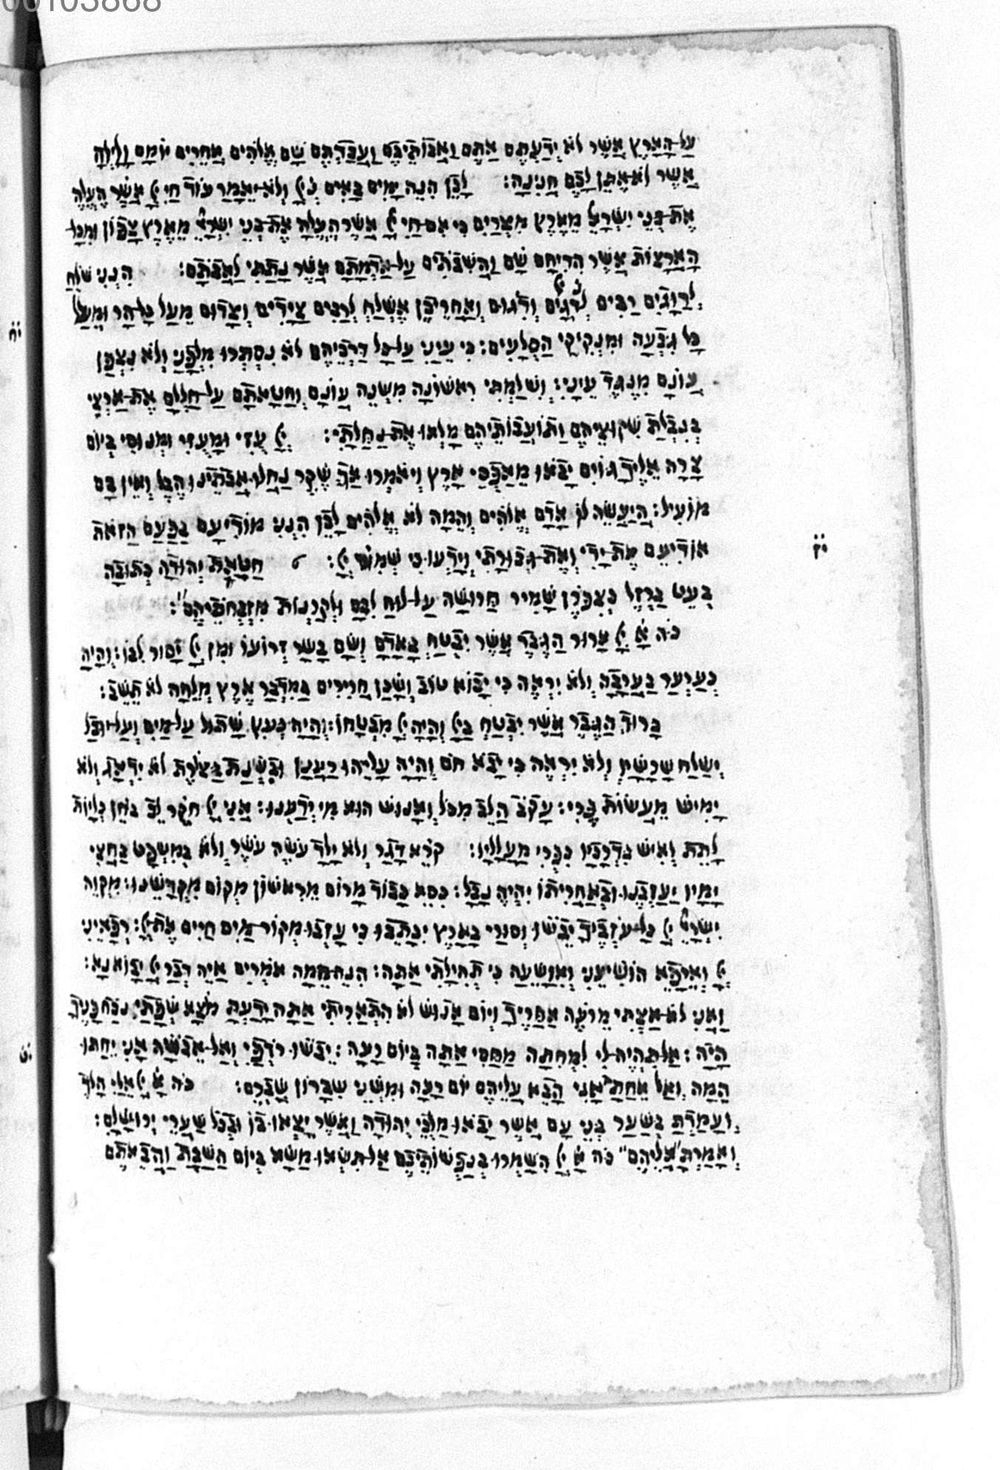 00103868
על־הָאָרֶץ אֲשֶׁר לֹא יְדַעְתֶּם אַתֶּם וַאֲבוֹתֵיכֶם וַעֲבַדְתֶּם שָׁם אֱלֹהִים אֲחֵרִים יוֹמָם וָלַיְלָה
אֲשֶׁר לֹא־אֶתֵּן לָכֶם חֲנִינָה: לָכֵן הִנֵּה יָמִים בָּאִים נְ יְיָ וְלֹא־יֵאָמֵר עוֹד חַי יְיָ אֲשֶׁר הֶעֱלָה
אֶת־בְּנֵי יִשְׂרָאֵל מֵאֶרֶץ מִצְרַיִם כִּי אִם־חַי יְיָ אֲשֶׁר הֶעֱלָה אֶת־בְּנֵי יִשְׂרָאֵל מֵאֶרֶץ צָפוֹן וּמִכֹּל
הָאֲרָצוֹת אֲשֶׁר הִדִּיחָם שָׁם וַהֲשִׁבֹתִים עַל־אַדְמָתָם אֲשֶׁר נָתַתִּי לַאֲבֹתָם: הִנְנִי שֹׁלֵחַ
לְדַוָּגִים רַבִּים נְ יְיָ וְדִגוּם וְאַחֲרֵי־כֵן אֶשְׁלַח לְרַבִּים צַיָּדִים וְצָדוּם מֵעַל כָּל־הַר וּמֵעַל
כָּל גִּבְעָה וּמִנְּקִיקֵי הַסְּלָעִים: כִּי עֵינַי עַל־כָּל דַּרְכֵיהֶם לֹא נִסְתְּרוּ מִלְּפָנַי וְלֹא נִצְפַּן
עֲוֹנָם מִנֶּגֶד עֵינָי: וְשִׁלַּמְתִּי רִאשׁוֹנָה מִשְׁנֵה עֲוֹנָם וְחַטָּאתָם עַל־חַלְּלָם אֶת־אַרְצִי
בְּנִבְלַת שִׁקּוּצֵיהֶם וְתוֹעֲבוֹתֵיהֶם מָלְאוּ אֶת־נַחֲלָתִי: יְיָ עֻזִּי וּמָעֻזִּי וּמְנוּסִי בְּיוֹם
צָרָה אֵלֶיךָ גּוֹיִם יָבֹאוּ מֵאַפְסֵי אָרֶץ וְיֹאמְרוּ אַךְ שֶׁקֶר נָחֲלוּ אֲבֹתֵינוּ הֶבֶל וְאֵין בָּם
מוֹעִיל: הֲיַעֲשֶׂה לּוֹ אָדָם אֱלֹהִים וְהֵמָּה לֹא אֱלֹהִים לָכֵן הִנְנִי מוֹדִיעָם בַּפַּעַם הַזֹּאת
אוֹדִיעֵם אֶת־יָדִי וְאֶת־גְּבוּרָתִי וְיָדְעוּ כִּי שְׁמִי יְיָ: ס חַטַּאת יְהוּדָה כְּתוּבָה
בְּעֵט בַּרְזֶל בְּצִפֹּרֶן שָׁמִיר חֲרוּשָׁה עַל־לוּחַ לִבָּם וּלְקַרְנוֹת מִזְבְּחוֹתֵיהֶם:
כֹּה אָ יְיָ אָרוּר הַגֶּבֶר אֲשֶׁר יִבְטַח בָּאָדָם וְשָׂם בָּשָׂר זְרוֹעוֹ וּמִן יְיָ יָסוּר לִבּוֹ: וְהָיָה
כְּעַרְעָר בָּעֲרָבָה וְלֹא יִרְאֶה כִּי יָבוֹא טוֹב וְשָׁכַן חֲרֵרִים בַּמִּדְבָּר אֶרֶץ מְלֵחָה לֹא תֵשֵׁב:
בָּרוּךְ הַגֶּבֶר אֲשֶׁר יִבְטַח בַּייָ וְהָיָה יְיָ מִבְטַחוֹ: וְהָיָה כְּעֵץ שָׁתוּל עַל־מַיִם וְעַל־יוּבַל
יְשַׁלַּח שָׁרָשָׁיו וְלֹא יִרְאֶה כִּי יָבֹא חֹם וְהָיָה עָלֵיהוּ רַעֲנָן וּבִשְׁנַת בַּצֹּרֶת לֹא יִדְאָג וְלֹא
יָמִישׁ מֵעֲשׂוֹת פֶּרִי: עָקֹב הַלֵּב מִכֹּל וְאָנוּשׁ הוּא מִי יֵדָעֶנּוּ: אֲנִי יְיָ חֹקֵר לֵב בֹּחֵן כְּלָיוֹת
לָתֵת לְאִישׁ כִּדְרָכָיו כִּפְרִי מַעֲלָלָיו: קֹרֵא דָגַר וְלֹא יָלָד עֹשֶׂה עֹשֶׁר וְלֹא בְמִשְׁפָּט בַּחֲצִי
יָמָיו יַעַזְבֶנּוּ וּבְאַחֲרִיתוֹ יִהְיֶה נָבָל: כִּסֵּא כָבוֹד מָרוֹם מֵרִאשׁוֹן מְקוֹם מִקְדָּשֵׁנוּ: מִקְוֵה
יִשְׂרָאֵל יְיָ כָּל־עֹזְבֶיךָ יֵבֹשׁוּ וְסוּרַי בָּאָרֶץ יִכָּתֵבוּ כִּי עָזְבוּ מְקוֹר־מַיִם חַיִּים אֶת־יְיָ: רְפָאֵינִי
יְיָ וְאֵרָפֵא הוֹשִׁיעֵנִי וְאִוָּשֵׁעָה כִּי תְהִלָּתִי אָתָּה: הִנֵּה־הֵמָּה אֹמְרִים אֵיה דְּבַר יְיָ יָבוֹא נָא:
וַאֲנִי לֹא־אַצְתִּי מֵרֹעֶה אַחֲרֶיךָ וְיוֹם אָנוּשׁ לֹא הִתְאַוֵּיתִי אַתָּה יָדַעְתָּ מֹצָא שְׂפָתַי נֹכַח פָּנֶיךָ
הָיָה: אַל־תִּהְיֵה־לִי לִמְחִתָּה מַחְסִי אַתָּה בְּיוֹם רָעָה: יֵבֹשׁוּ רֹדְפַי וְאַל־אֵבֹשָׁה אָנִי יֵחַתּוּ
הֵמָּה וְאַל אֵחַתָּה אָנִי הָבִא עֲלֵיהֶם יוֹם רָעָה וּמִשְׁנֵי שִׁבָּרוֹן שָׁבְרֵם: כֹּה אָ יְיָ אֵלַי הָלֹךְ
וְעָמַדְתָּ בְּשַׁעַר בְּנֵי עָם אֲשֶׁר יָבֹאוּ מַלְכֵי יְהוּדָה וַאֲשֶׁר יֵצְאוּ בוֹ וּבְכֹל שַׁעֲרֵי יְרוּשָׁלִָם:
וְאָמַרְתָּ אֲלֵיהֶם כֹּה אָ יְיָ הִשָּׁמְרוּ בְּנַפְשׁוֹתֵיכֶם אַל־תִּשְׂאוּ מַשָּׂא בְּיוֹם הַשַּׁבָּת וַהֲבֵאתֶם
יז